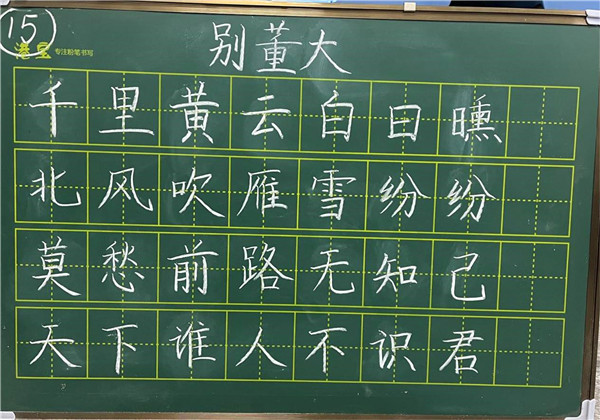 15
港宝 专注粉笔书写
别董大
千里黄云白日曛
北风吹雁雪纷纷
莫愁前路无知己
天下谁人不识君